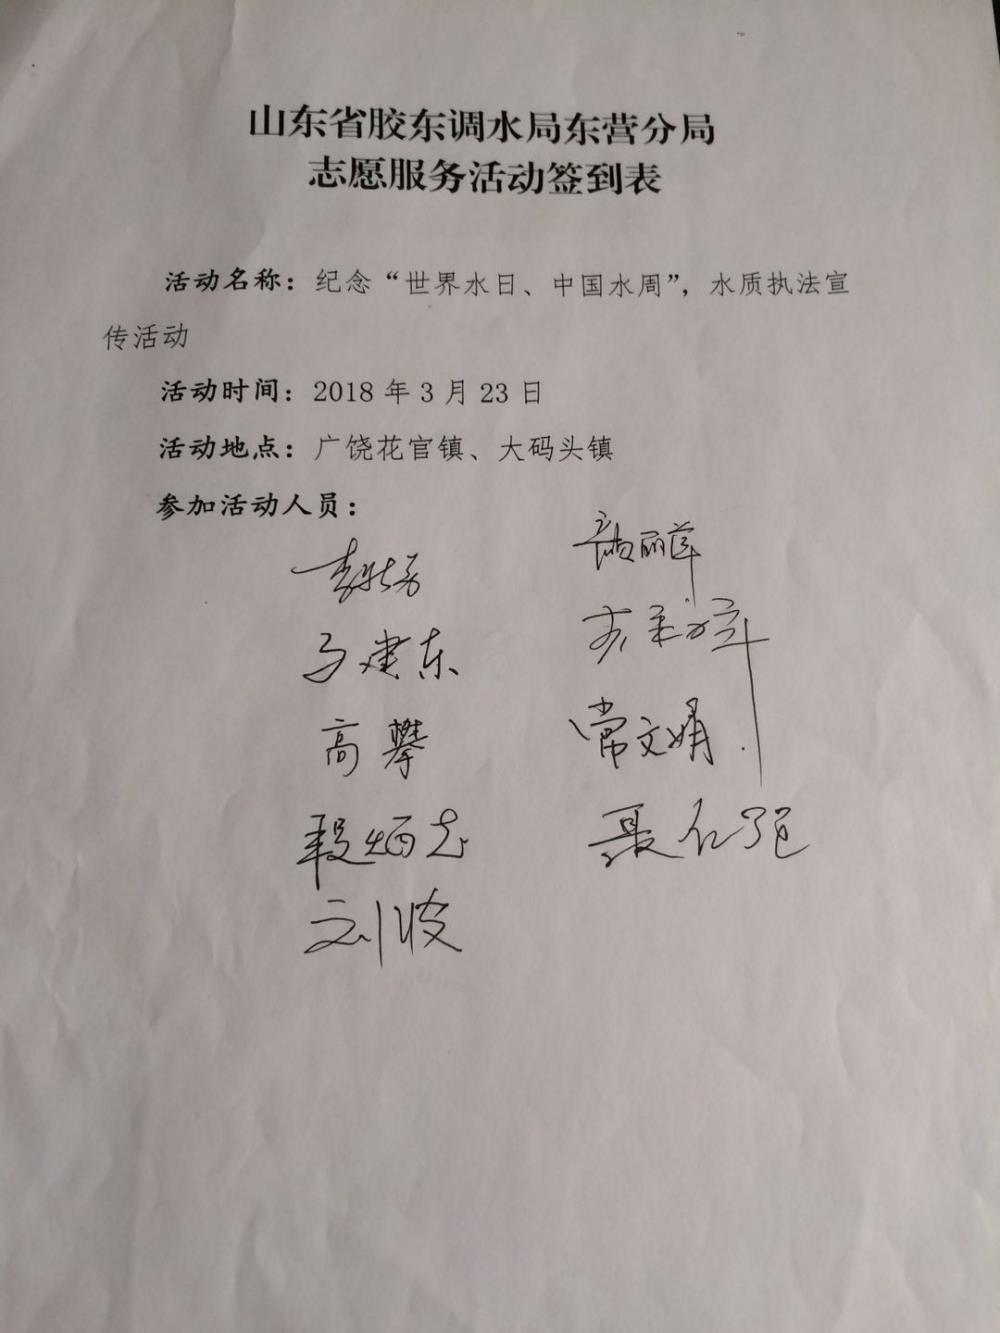 山东省胶东调水局东营分局
志愿服务活动签到表
活动名称：纪念“世界水日、中国水周”，水质执法宣
传活动
活动时间：2018 年 3 月 23 日
活动地点：广饶花官镇、大码头镇
参加活动人员：
马建东
高攀
常文娟
段炳志
刘波